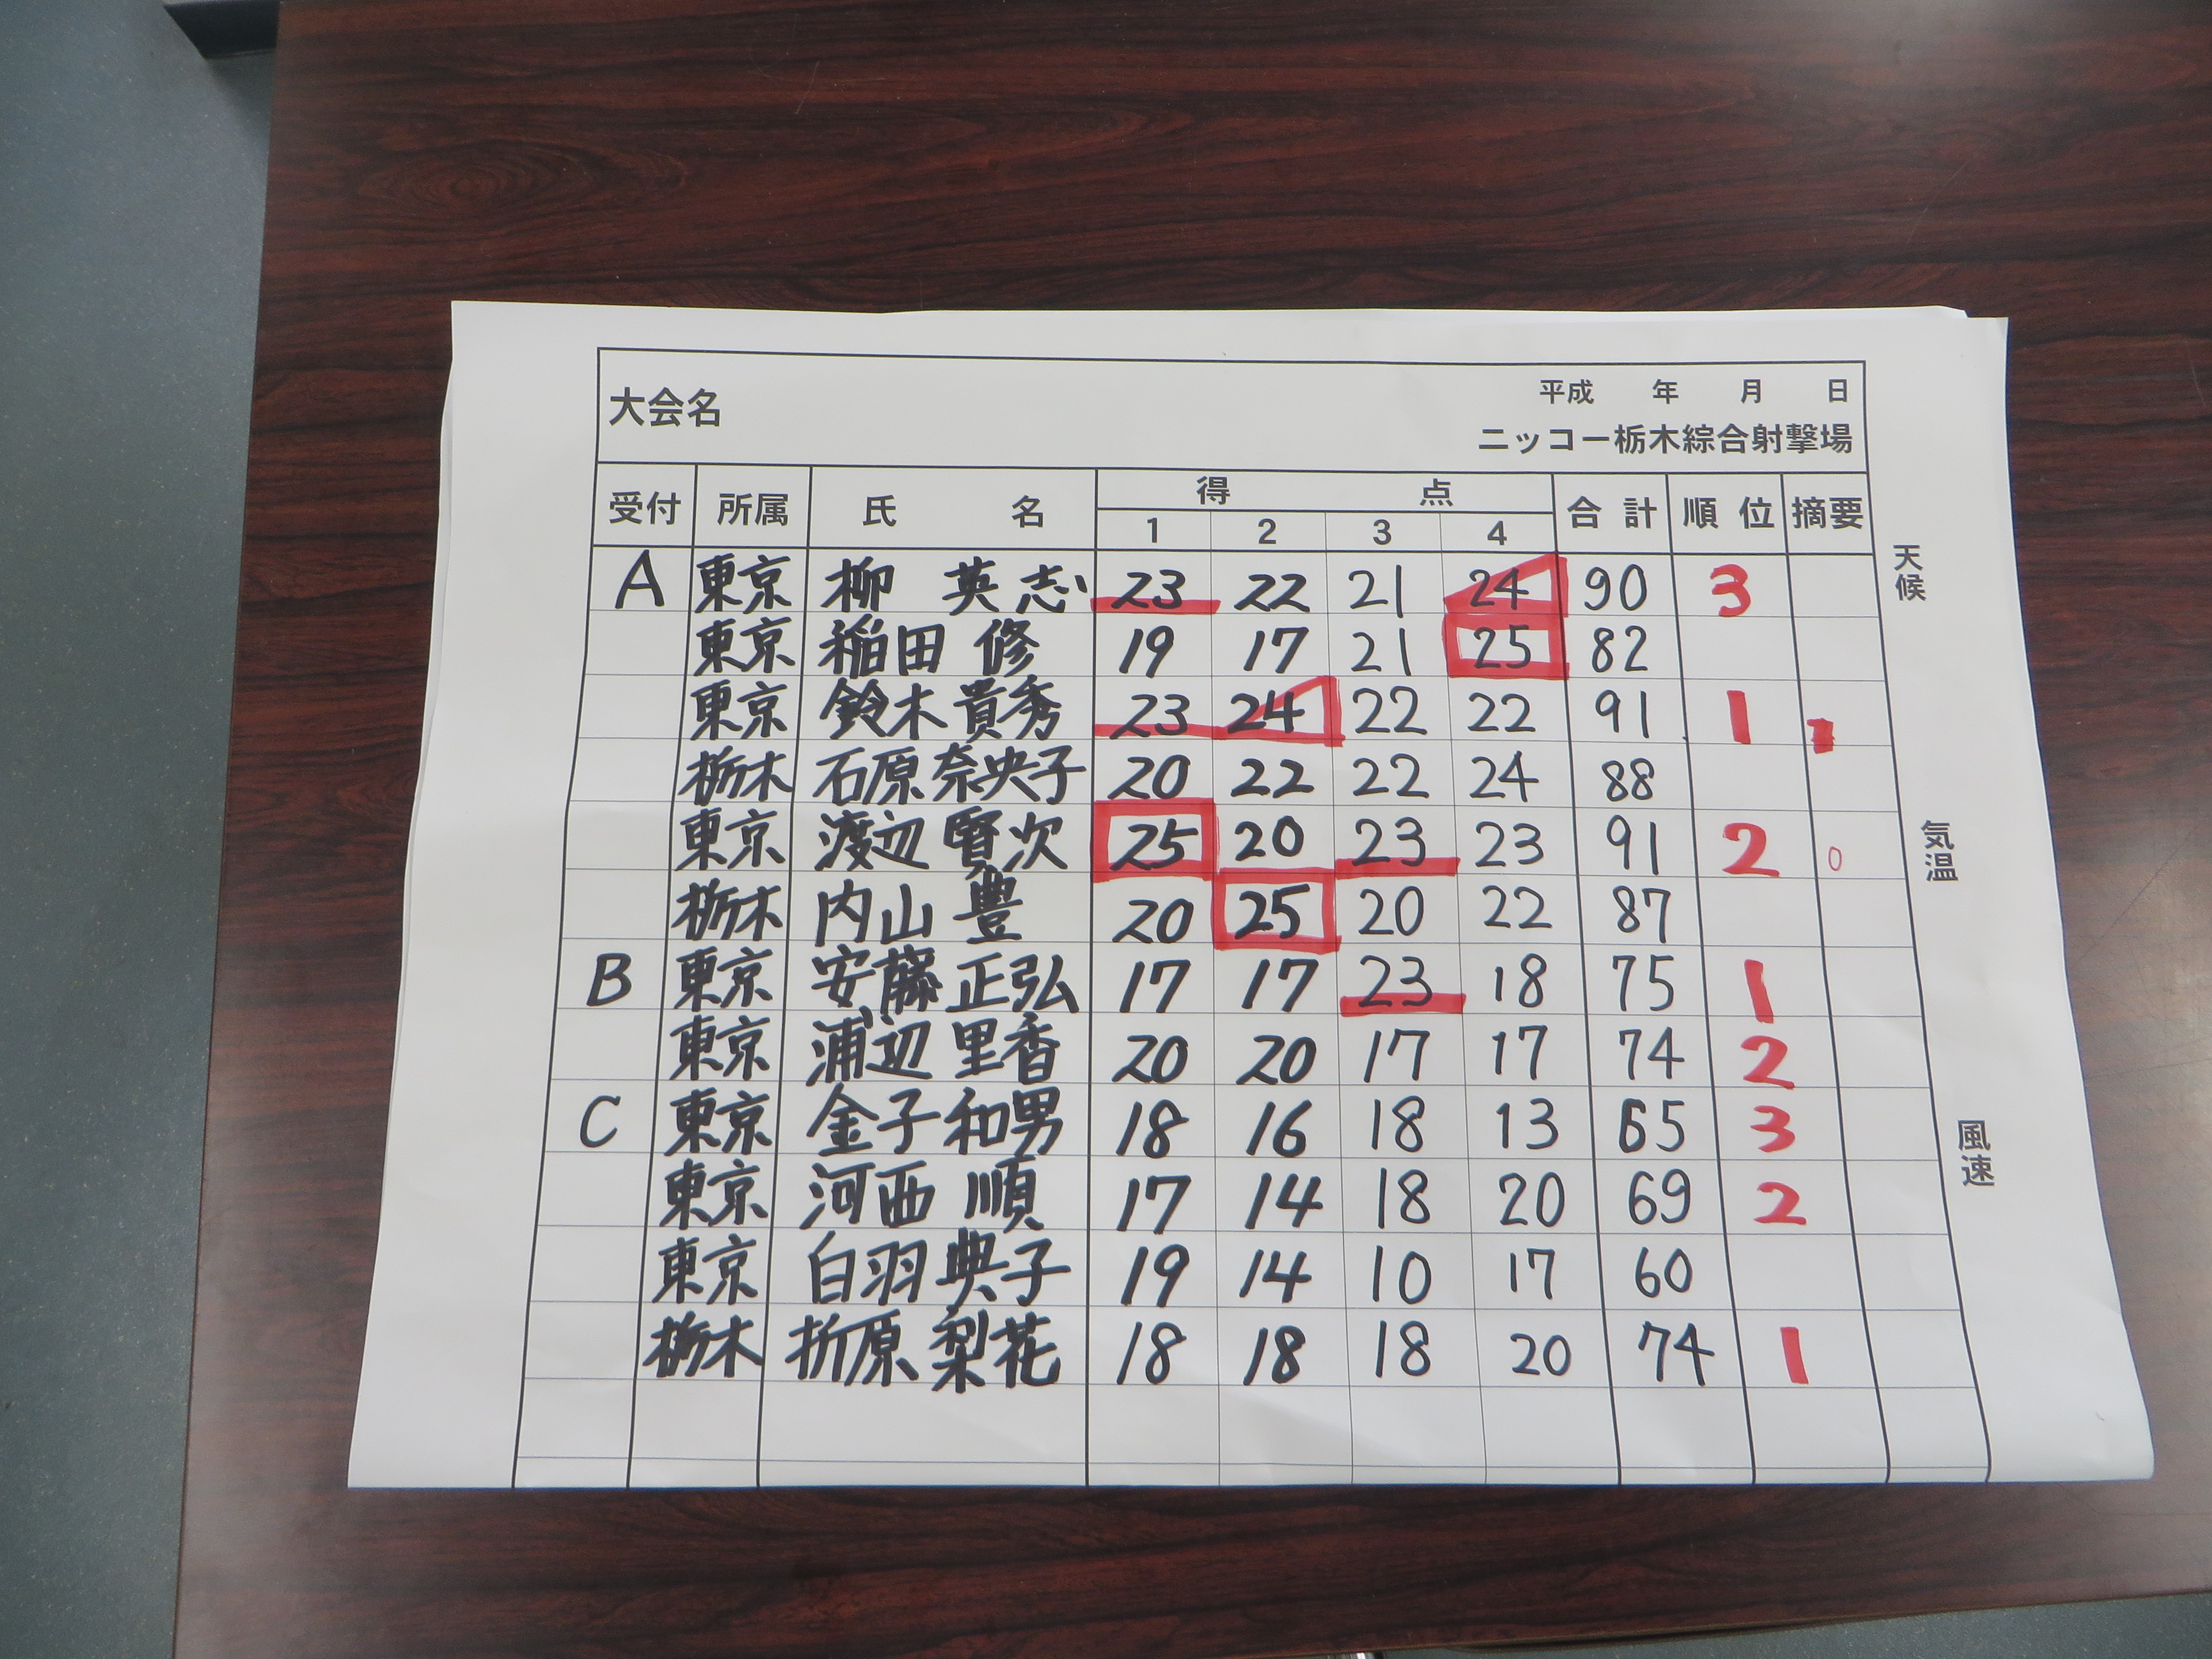 平成 年 月 日
大会名
ニッコー栃木綜合射撃場
受付 所属 氏 名 得 点 合 計 順 位 摘要
1 2 3 4
A 東京 柳 英志 23 22 21 24 90 3
東京 稲田 修 19 17 21 25 82
東京 鈴木貴秀 23 24 22 22 91 1
栃木 石原奈央子 20 22 22 24 88
東京 渡辺賢次 25 20 23 23 91 2 0
栃木 内山 豊 20 25 20 22 87
B 東京 安藤正弘 17 17 23 18 75 1
東京 浦辺里香 20 20 17 17 74 2
C 東京 金子和男 18 16 18 13 65 3
東京 河西 順 17 14 18 20 69 2
東京 白羽典子 19 14 10 17 60
栃木 折原梨花 18 18 18 20 74 1
天候
気温
風速